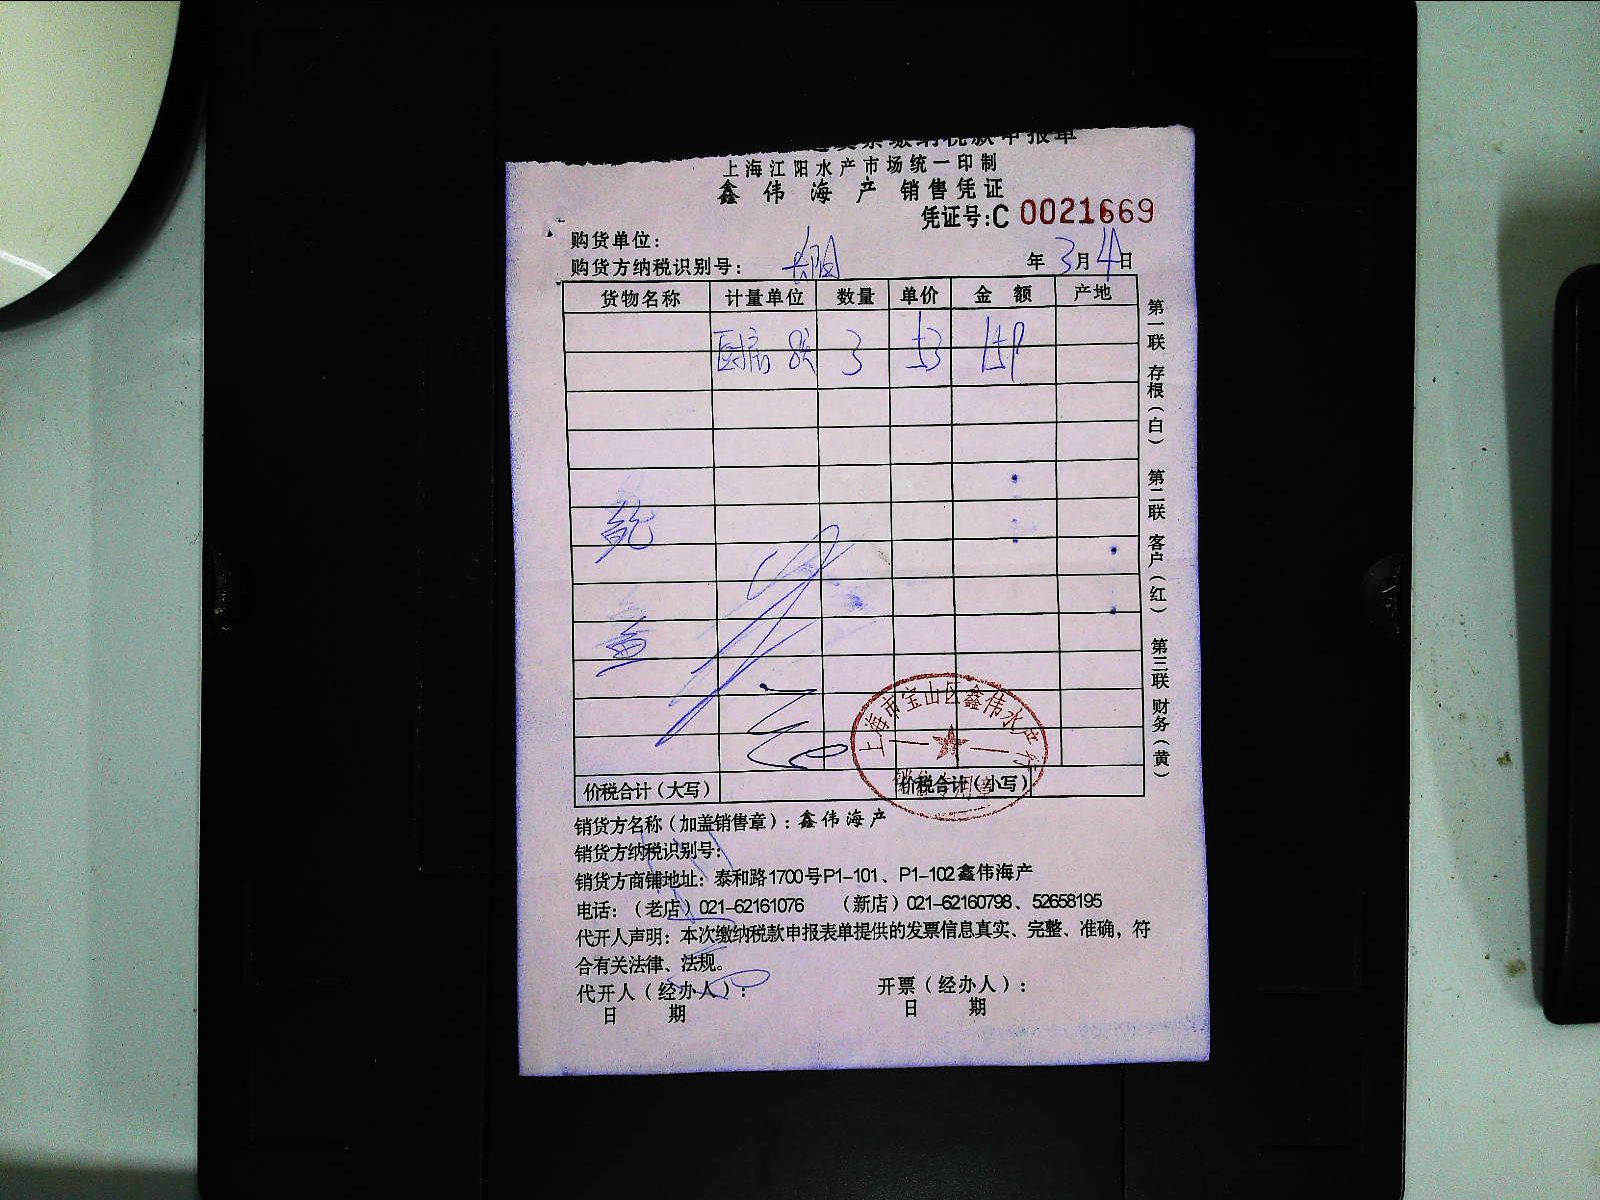 缴纳税款申报单
上海江阳水产市场统一印制
鑫伟海产 销售凭证
凭证号:C 0021669
购货单位：
购货方纳税识别号：
年 3月 4日
货物名称 计量单位 数量 单价 金额 产地
3 53 159
鱼
价税合计（大写） 价税合计（小写）
上海市宝山区鑫伟水产行
销货方名称（加盖销售章）：鑫伟海产
销货方纳税识别号：
销货方商铺地址：泰和路1700号P1-101、P1-102鑫伟海产
电话：（老店）021-62161076 （新店）021-62160798、52658195
代开人声明：本次缴纳税款申报表单提供的发票信息真实、完整、准确，符
合有关法律、法规。
代开人（经办人）： 开票（经办人）：
日 期 日 期
第一联 存根（白） 第二联 客户（红） 第三联 财务（黄）